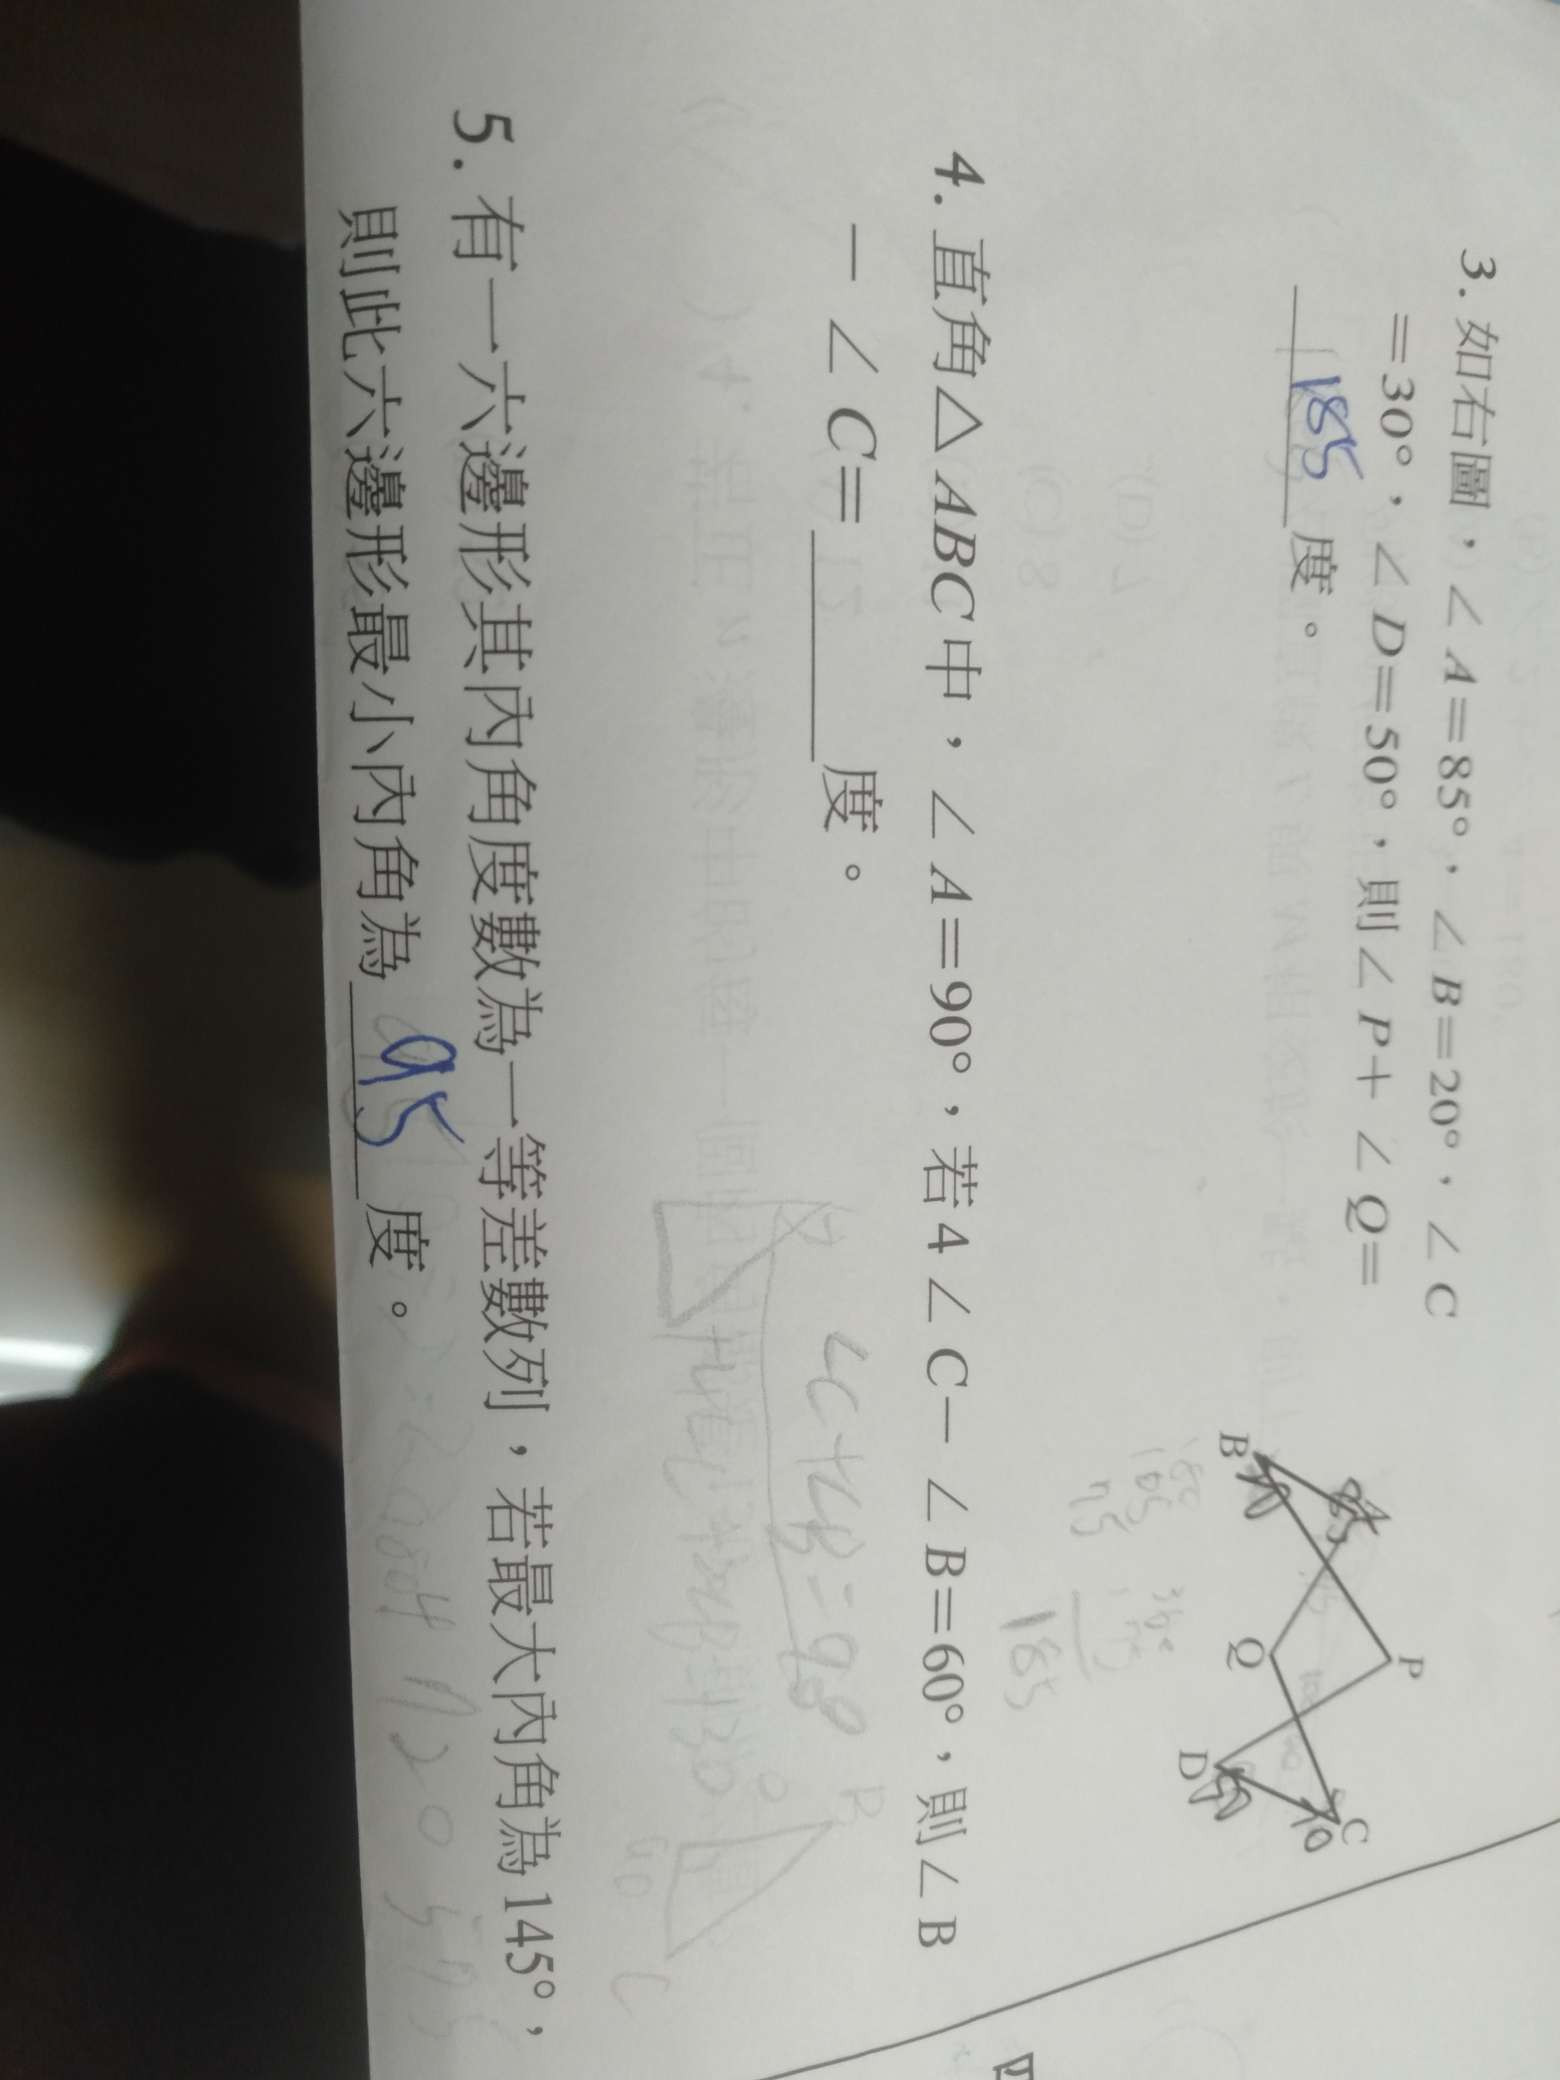 3. 如右圖，∠A＝85°，∠B＝20°，∠C
＝30°，∠D＝50°，則∠P＋∠Q＝
185 度。
A
B
P
Q
C
D
180
105
75
185
4. 直角△ABC中，∠A＝90°，若4∠C－∠B＝60°，則∠B
－∠C＝ 度。
∠C+∠B=90
B
C
5. 有一六邊形其內角度數為一等差數列，若最大內角為145°，
則此六邊形最小內角為 95 度。